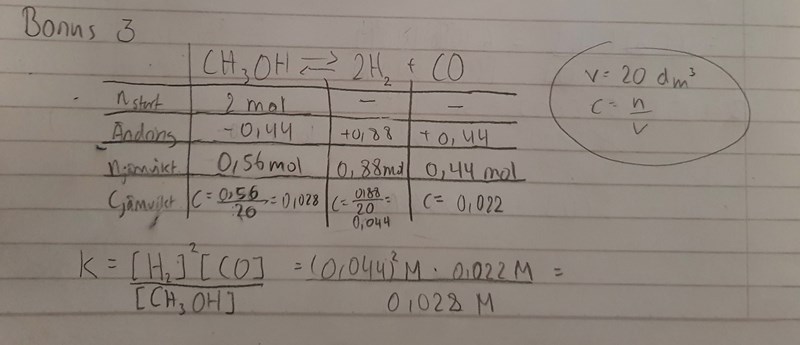 Bonus 3
CH₃OH ⇌ 2H₂ + CO
n start 2 mol - -
Ändring -0,44 +0,88 +0,44
n jämvikt 0,56mol 0,88mol 0,44 mol
C jämvikt C = 0,56/20 = 0,028 C = 0,88/20 = 0,044 C = 0,022
V = 20 dm³
C = n/V
K = [H₂]²[CO]/[CH₃OH] = (0,044)²M · 0,022 M/0,028 M =